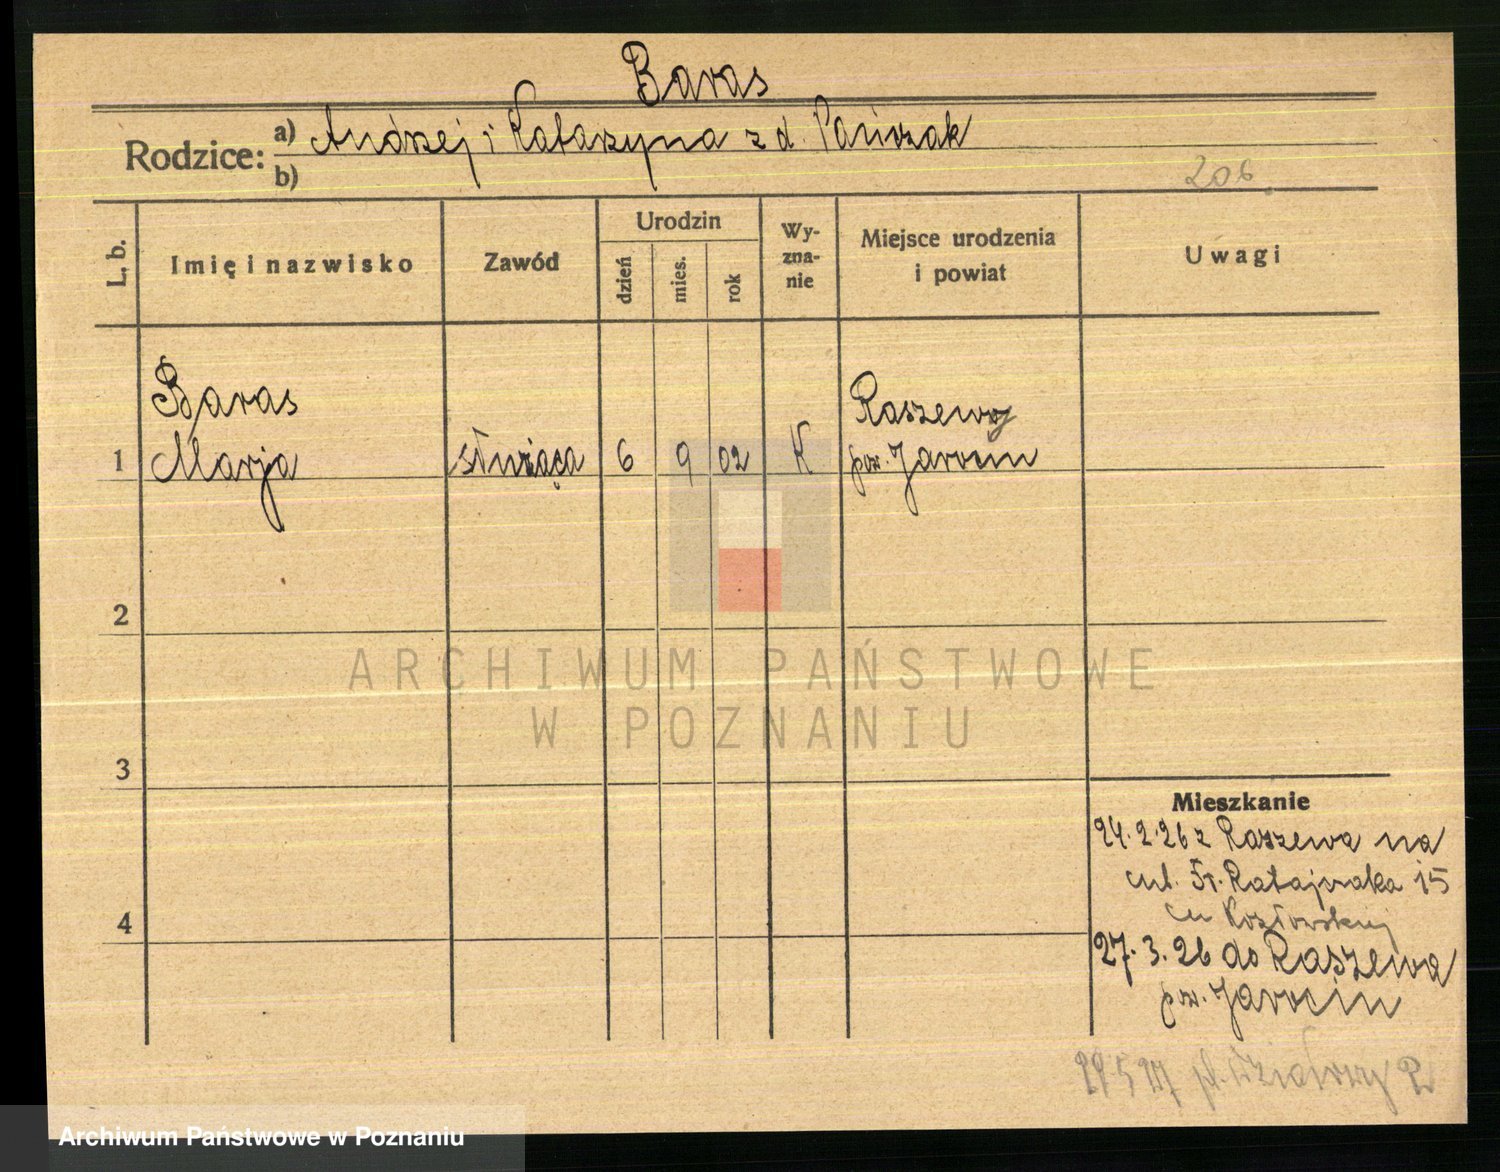 Baras
Rodzice: a) Andrzej i Katarzyna z d. Pańczak
b)
206
L. b. Imię i nazwisko Zawód Urodzin dzień mies. rok Wy-zna-nie Miejsce urodzenia i powiat Uwagi
Baras Raszewy
1 Marja służąca 6 9 02 K pow. Jarocin
2
ARCHIWUM PAŃSTWOWE
W POZNANIU
3
Mieszkanie
24.2.26 z Raszewa na
ul. Fr. Ratajczaka 15
u Kozłowskiej
4
27.3.26 do Raszewa
pow. Jarocin
29 5 27 pl.
Archiwum Państwowe w Poznaniu